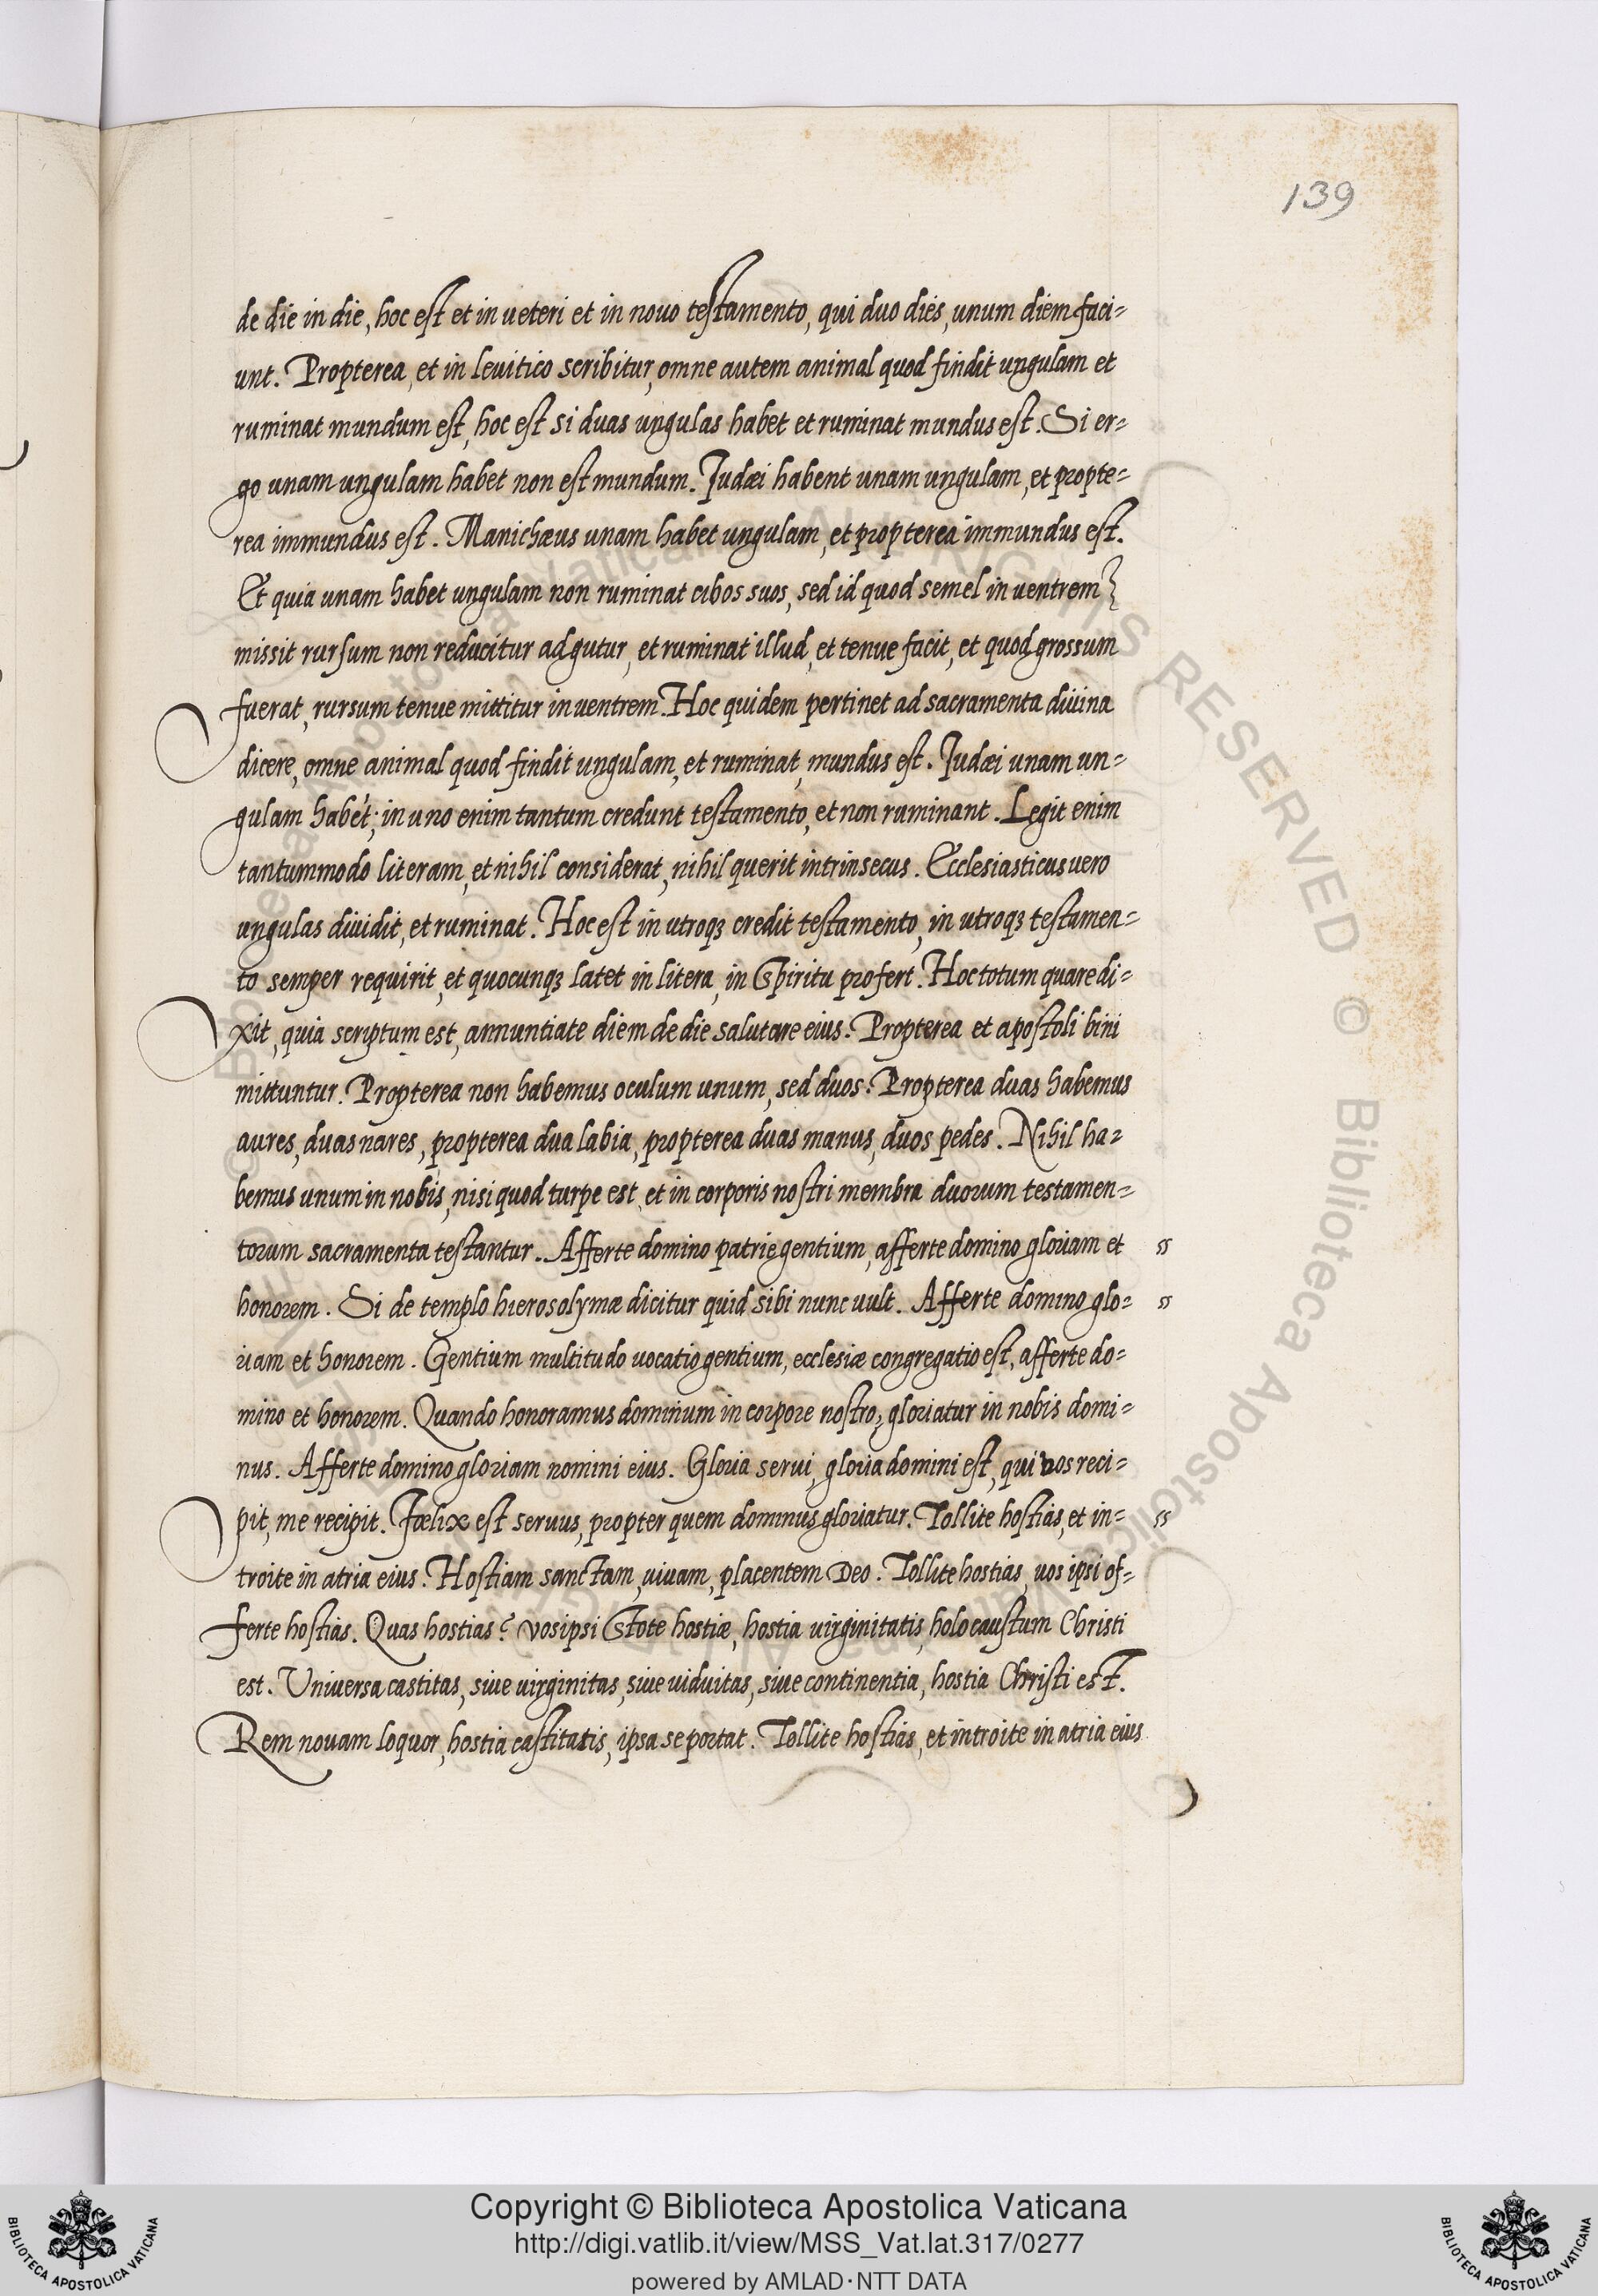 139
de die in die, hoc est et in ueteri et in nouo testamento, qui duo dies, unum diem faci=
unt. Propterea, et in leuitico scribitur, omne autem animal quod findit ungulam et
ruminat mundum est, hoc est si duas ungulas habet et ruminat mundus est. Si er=
go unam ungulam habet non est mundum. Judæi habent unam ungulam, et propte=
rea immundus est. Manichæus unam habet ungulam, et propterea immundus est.
Et quia unam habet ungulam non ruminat cibos suos, sed id quod semel in uentrem
missit rursum non reducitur ad gutur, et ruminat illud, et tenue facit, et quod grossum
fuerat, rursum tenue mittitur in uentrem. Hoc quidem pertinet ad sacramenta diuina
dicere, omne animal quod findit ungulam, et ruminat, mundus est. Judæi unam un=
gulam habet; in uno enim tantum credunt testamento, et non ruminant. Legit enim
tantummodo literam, et nihil considerat, nihil querit intrinsecus. Ecclesiasticus uero
ungulas diuidit, et ruminat. Hoc est in utroqȝ credit testamento, in utroqȝ testamen=
to semper requirit, et quocunqȝ latet in litera, in Spiritu profert. Hoc totum quare di=
xit, quia scriptum est, annuntiate diem de die salutare eius. Propterea et apostoli bini
mittuntur. Propterea non habemus oculum unum, sed duos. Propterea duas habemus
aures, duas nares, propterea dua labia, propterea duas manus, duos pedes. Nihil ha=
bemus unum in nobis, nisi quod turpe est, et in corporis nostri membra duorum testamen=
torum sacramenta testantur. Afferte domino patrie gentium, afferte domino gloriam et
honorem. Si de templo hierosolymæ dicitur quid sibi nunc uult. Afferte domino glo=
riam et honorem. Gentium multitudo uocatio gentium, ecclesiæ congregatio est, afferte do=
mino et honorem. Quando honoramus dominum in corpore nostro, gloriatur in nobis domi=
nus. Afferte domino gloriam nomini eius. Gloria serui, gloria domini est, qui uos reci=
pit, me recipit. Fœlix est seruus, propter quem dominus gloriatur. Tollite hostias, et in=
troite in atria eius. Hostiam sanctam, uiuam, placentem Deo. Tollite hostias, uos ipsi of=
ferte hostias. Quas hostias? vos ipsi Stote hostiæ, hostia uirginitatis, holocaustum Christi
est. Universa castitas, siue uirginitas, siue uiduitas, siue continentia, hostia Christi est.
Rem nouam loquor, hostia castitatis, ipsa se portat. Tollite hostias, et introite in atria eius
© Biblioteca Apostolica Vaticana ALL RIGHTS RESERVED
Copyright © Biblioteca Apostolica Vaticana
http://digi.vatlib.it/view/MSS_Vat.lat.317/0277
powered by AMLAD·NTT DATA
BIBLIOTECA APOSTOLICA VATICANA
BIBLIOTECA APOSTOLICA VATICANA